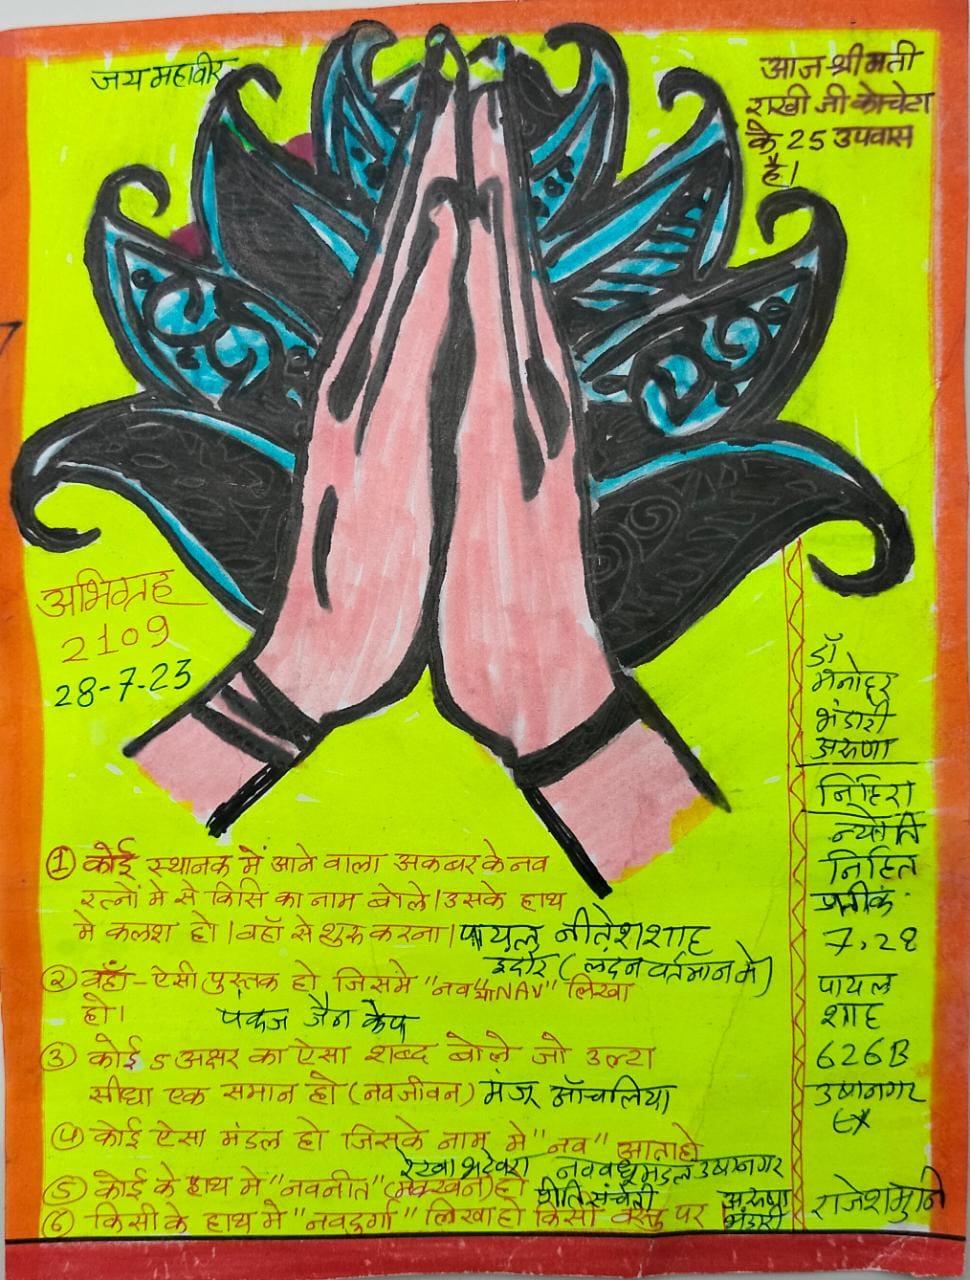 जय महावीर
आज श्रीमती
राखी जी कोचेटा
के 25 उपवास
है।
अभिग्रह
2109
28-7-23
डॉ
मनोहर
भंडारी
अरुणा
निहिरा
ज्योति
निहित
प्रतीक
7.28
पायल
शाह
626B
उषानगर
Ex
राजेशमुनि
① कोई स्थानक में आने वाला अकबर के नव
रत्नों मे से किसि का नाम बोले। उसके हाथ
मे कलश हो। वहाँ से शुरू करना। पायल नीतेश शाह
इंदौर (लंदन वर्तमान मे)
② वहाँ - ऐसी पुस्तक हो जिसमे "नव" या "NAV" लिखा
हो। पंकज जैन केप
③ कोई 5 अक्षर का ऐसा शब्द बोले जो उल्टा
सीधा एक समान हो (नवजीवन) मंजू आँचलिया
④ कोई ऐसा मंडल हो जिसके नाम मे "नव" आता हो
रेखा भदेवरा नववधू मंडल उषानगर
⑤ कोई के हाथ मे "नवनीत" (मक्खन) हो प्रीति संचेती
⑥ किसी के हाथ मे "नवदुर्गा" लिखा हो किसी वस्तु पर अरुणा
भंडारी